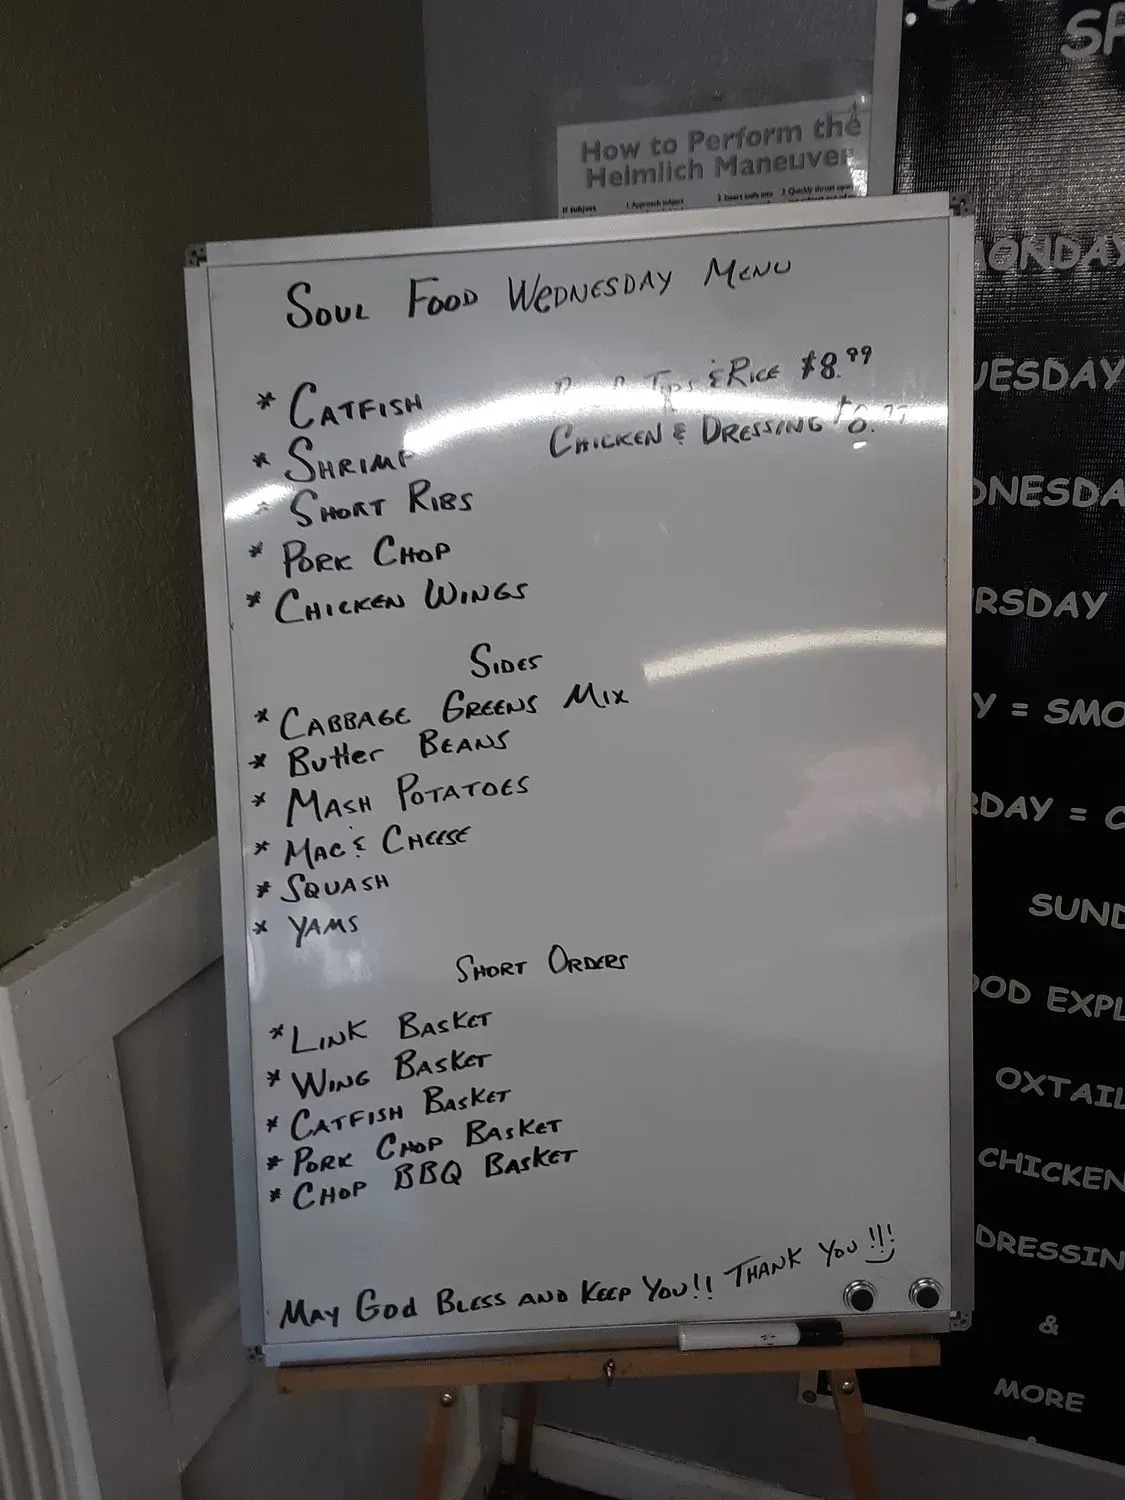 How to Perform the
Heimlich Maneuver
If subject
1. Approach subject
2. Insert knife into
3. Quickly thrust
SOUL FOOD WEDNESDAY MENU
* CATFISH
* SHRIMP
SHORT RIBS
* PORK CHOP
* CHICKEN WINGS
TIPS & RICE $8.99
CHICKEN & DRESSING
SIDES
* CABBAGE GREENS MIX
* Butter BEANS
* MASH POTATOES
* MAC & CHEESE
* SQUASH
* YAMS
SHORT ORDERS
* LINK BASKET
* WING BASKET
* CATFISH BASKET
* PORK CHOP BASKET
* CHOP BBQ BASKET
MAY GOd BLESS AND KEEP YOU!! THANK YOU!!!
SP
ONDAY
UESDAY
DNESDA
RSDAY
Y = SMO
RDAY = C
SUND
OOD EXPL
OXTAIL
CHICKEN
DRESSIN
&
MORE